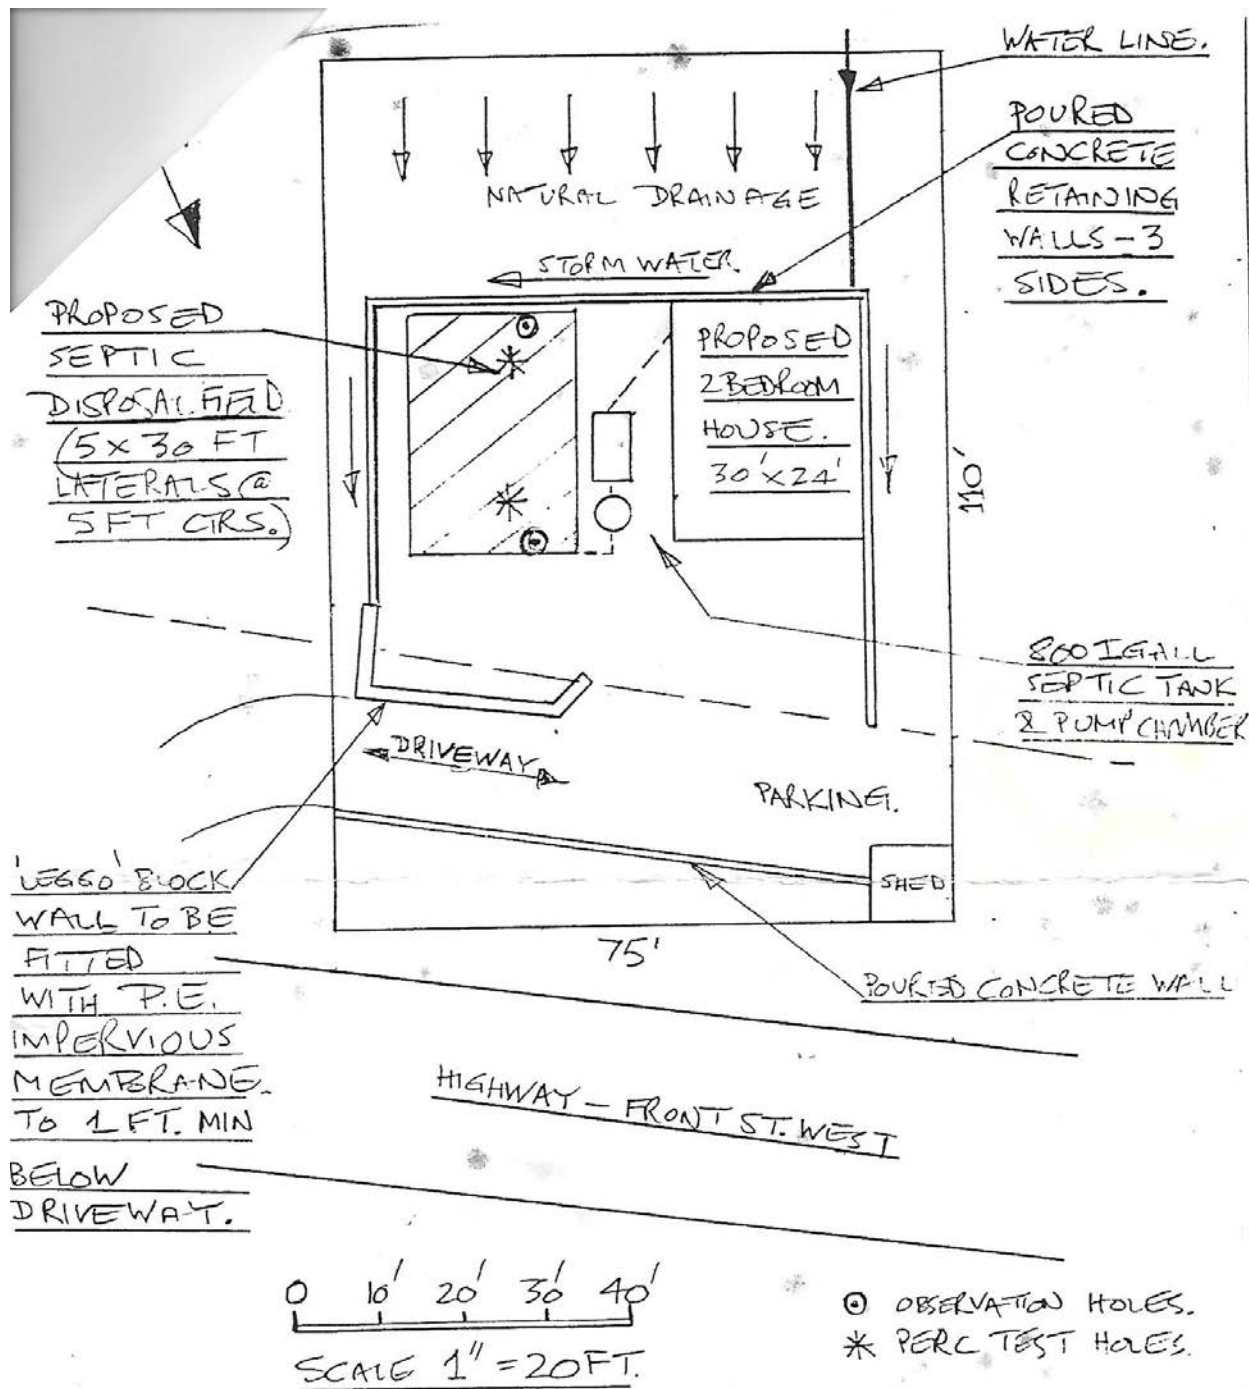 WATER LINE.
POURED
CONCRETE
RETAINING
WALLS - 3
SIDES.
NATURAL DRAINAGE
STORM WATER.
PROPOSED
SEPTIC
DISPOSAL FIELD
(5 x 30 FT
LATERALS @
5 FT CTRS.)
PROPOSED
2 BEDROOM
HOUSE.
30' x 24'
110'
800 IGALL
SEPTIC TANK
& PUMP CHAMBER
DRIVEWAY
PARKING.
'LEGGO' BLOCK
WALL TO BE
FITTED
WITH P.E.
IMPERVIOUS
MEMBRANE.
TO 1 FT. MIN
BELOW
DRIVEWAY.
SHED
75'
POURED CONCRETE WALL
HIGHWAY - FRONT ST. WEST
0 10' 20' 30' 40'
SCALE 1" = 20 FT.
OBSERVATION HOLES.
PERC TEST HOLES.